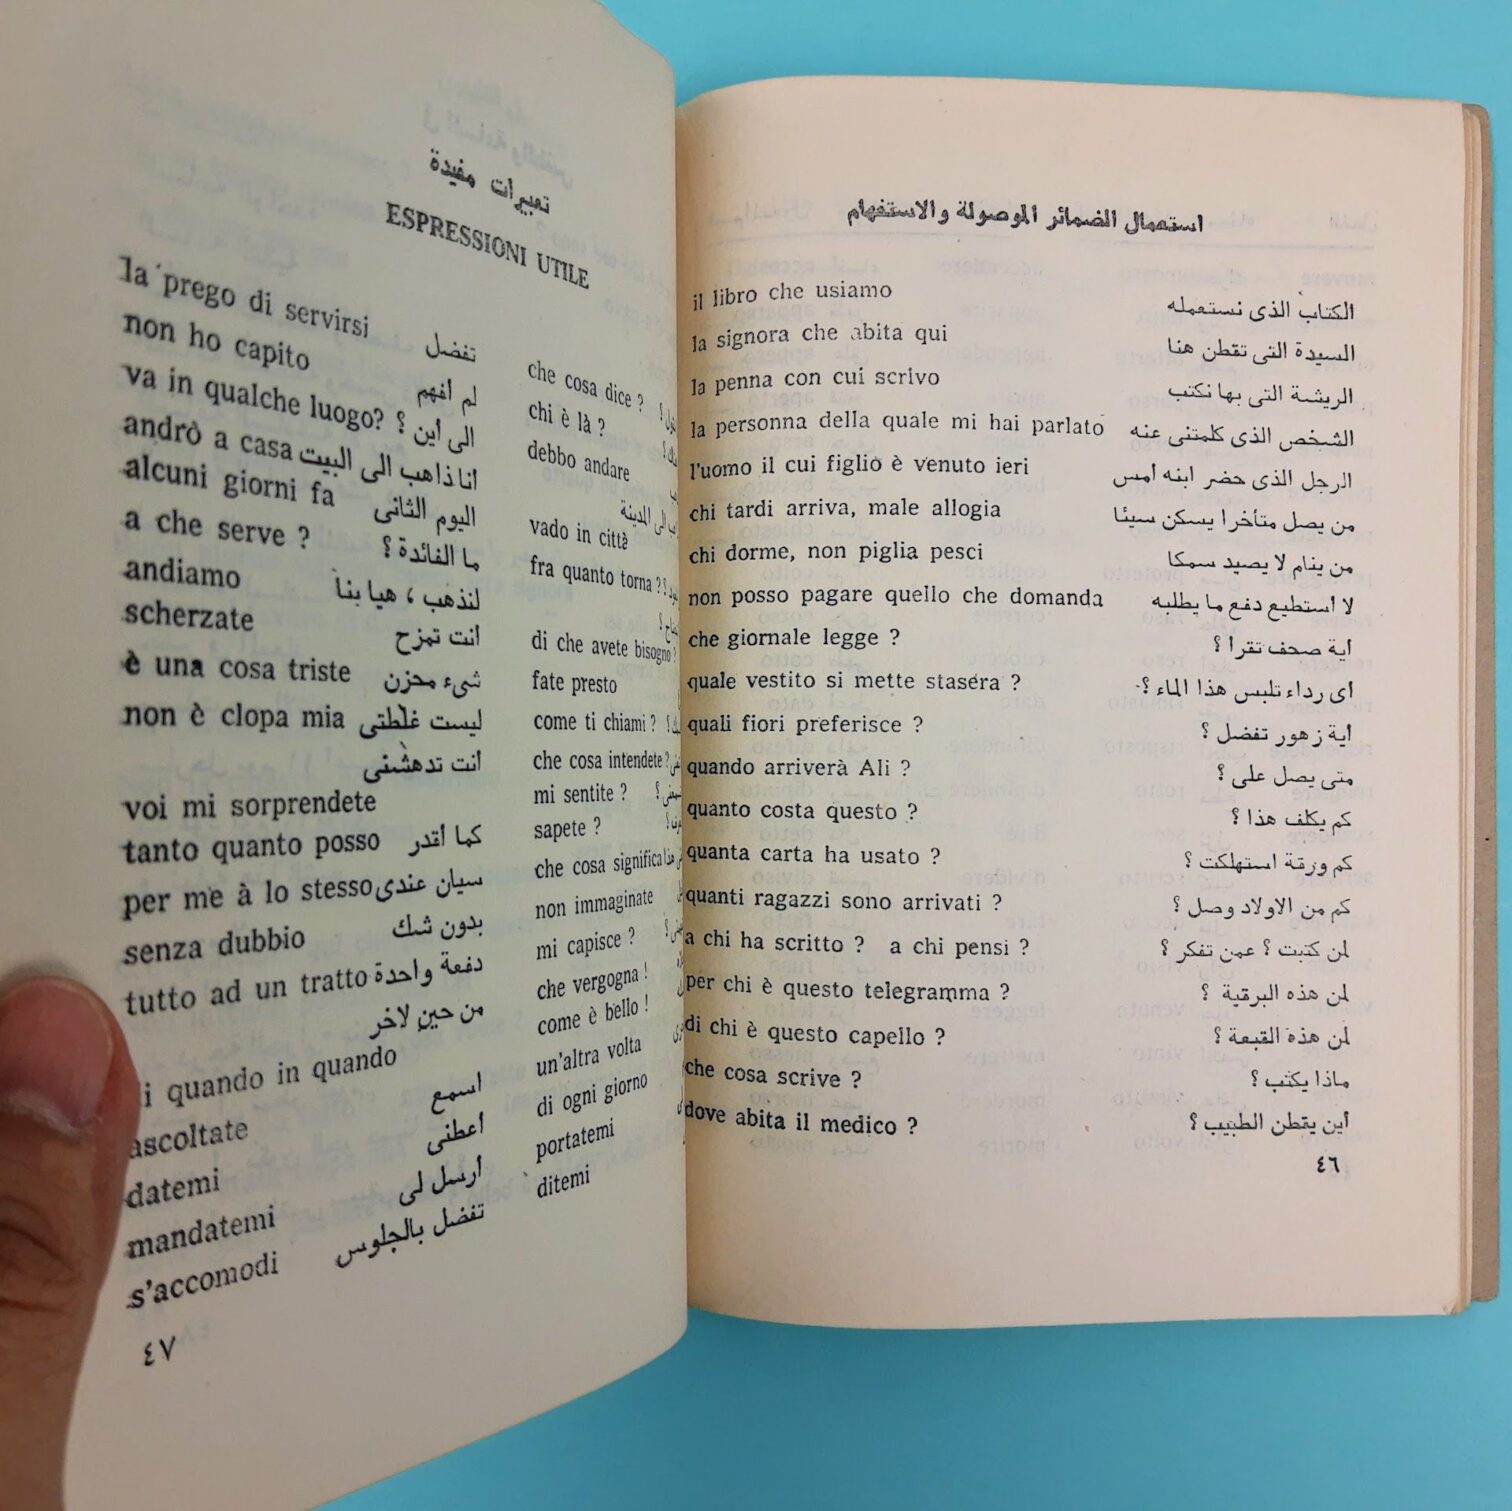 استعمال الضمائر الموصولة والاستفهام
il libro che usiamo الكتاب الذى نستعمله
la signora che abita qui السيدة التى تقطن هنا
la penna con cui scrivo الريشة التى بها نكتب
la personna della quale mi hai parlato الشخص الذى كلمتنى عنه
l'uomo il cui figlio è venuto ieri الرجل الذى حضر ابنه امس
chi tardi arriva, male allogia من يصل متأخرا يسكن سيئا
chi dorme, non piglia pesci من ينام لا يصيد سمكا
non posso pagare quello che domanda لا أستطيع دفع ما يطلبه
che giornale legge ? اية صحف تقرا ؟
quale vestito si mette stasera ? اى رداء تلبس هذا الماء ؟
quali fiori preferisce ? أية زهور تفضل ؟
quando arriverà Ali ? متى يصل على ؟
quanto costa questo ? كم يكلف هذا ؟
quanta carta ha usato ? كم ورقة استهلكت ؟
quanti ragazzi sono arrivati ? كم من الاولاد وصل ؟
a chi ha scritto ? a chi pensi ? لمن كتبت ؟ عمن تفكر ؟
per chi è questo telegramma ? لمن هذه البرقية ؟
di chi è questo capello ? لمن هذه القبعة ؟
che cosa scrive ? ماذا يكتب ؟
dove abita il medico ? أين يقطن الطبيب ؟
٤٦
تعبيرات مفيدة
ESPRESSIONI UTILE
la prego di servirsi تفضل
non ho capito لم أفهم
va in qualche luogo? الى أين ؟
andrò a casa انا ذاهب الى البيت
alcuni giorni fa اليوم الثانى
a che serve ? ما الفائدة ؟
andiamo لنذهب ، هيا بنا
scherzate انت تمزح
è una cosa triste شىء محزن
non è clopa mia ليست غلطتى
انت تدهشنى
voi mi sorprendete
tanto quanto posso كما أقدر
per me à lo stesso سيان عندى
senza dubbio بدون شك
tutto ad un tratto دفعة واحدة
من حين لاخر
i quando in quando
ascoltate اسمع
datemi أعطنى
mandatemi أرسل لى
s'accomodi تفضل بالجلوس
che cosa dice ?
chi è là ?
debbo andare
الى المدينة
vado in città
fra quanto torna ?
di che avete bisogno ?
fate presto
come ti chiami ?
che cosa intendete ?
mi sentite ?
sapete ?
che cosa significa
non immaginate
mi capisce ?
che vergogna !
come è bello !
un'altra volta
di ogni giorno
portatemi
ditemi
٤٧